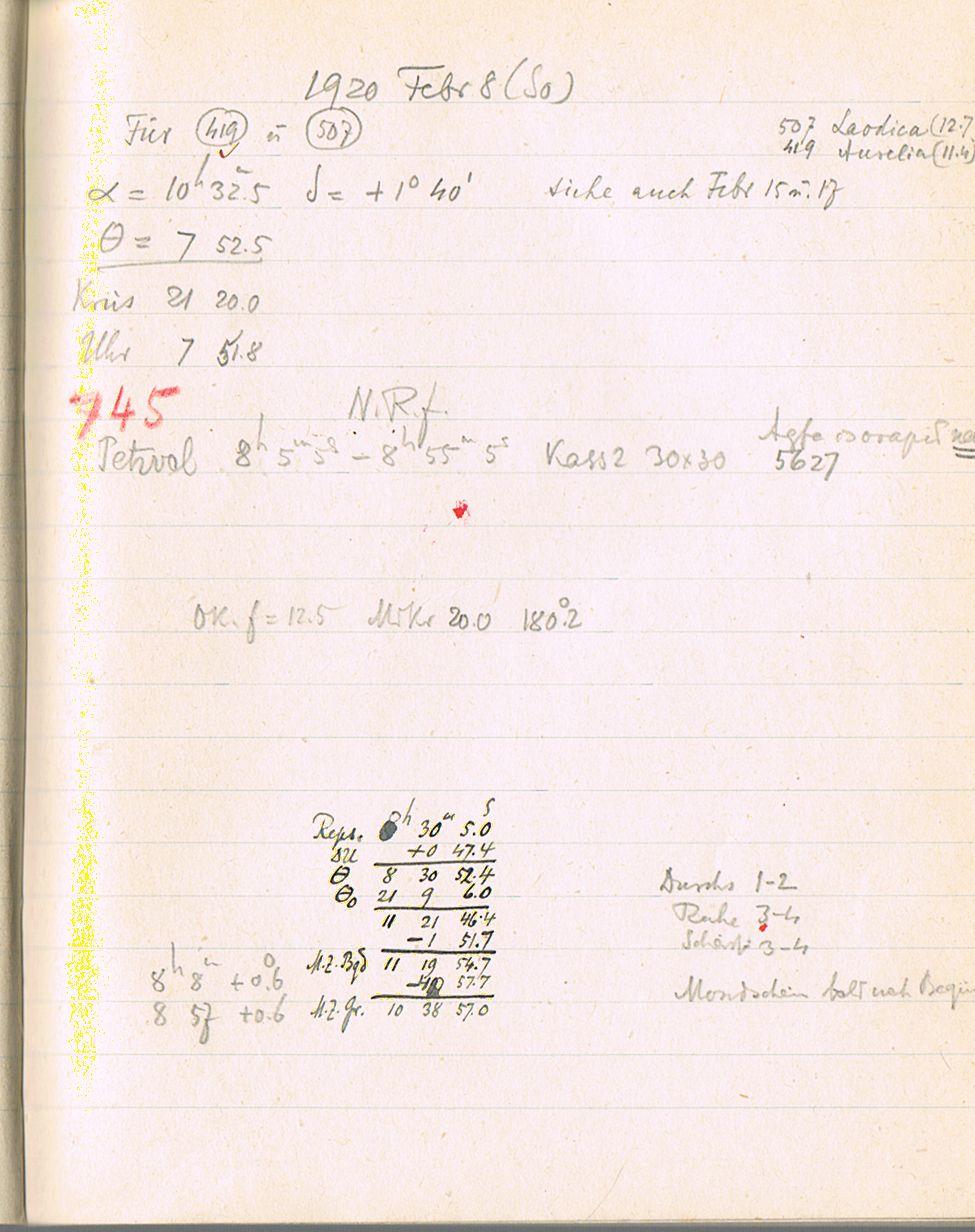 1920 Febr 8 (So)
Für 419 u 507
507 Laodica (12.7
419 Aurelia (11.4)
α = 10h 32m.5 δ = +1° 40' siehe auch Febr 15 u. 17
Θ = 7 52.5
Kreis 21 20.0
Uhr 7 51.8
745 N.R.f.
Agfa isorapid
Petzval 8h 5m 5s – 8h 55m 5s Kass 2 30x30 5627
Ok. f = 12.5 Mikr 20.0 180°.2
Reps. 8h 30m 5.0s
ΔU +0 47.4
Θ 8 30 52.4
Θ0 21 9 6.0
11 21 46.4
–1 51.7
M.Z. Bgd 11 19 54.7
–40 57.7
M.Z. Gr. 10 38 57.0
8h 8m +0°.6
8 57 +0.6
Durchs 1–2
Ruhe 3–4
Schärfe 3–4
Mondschein bald nach Begin